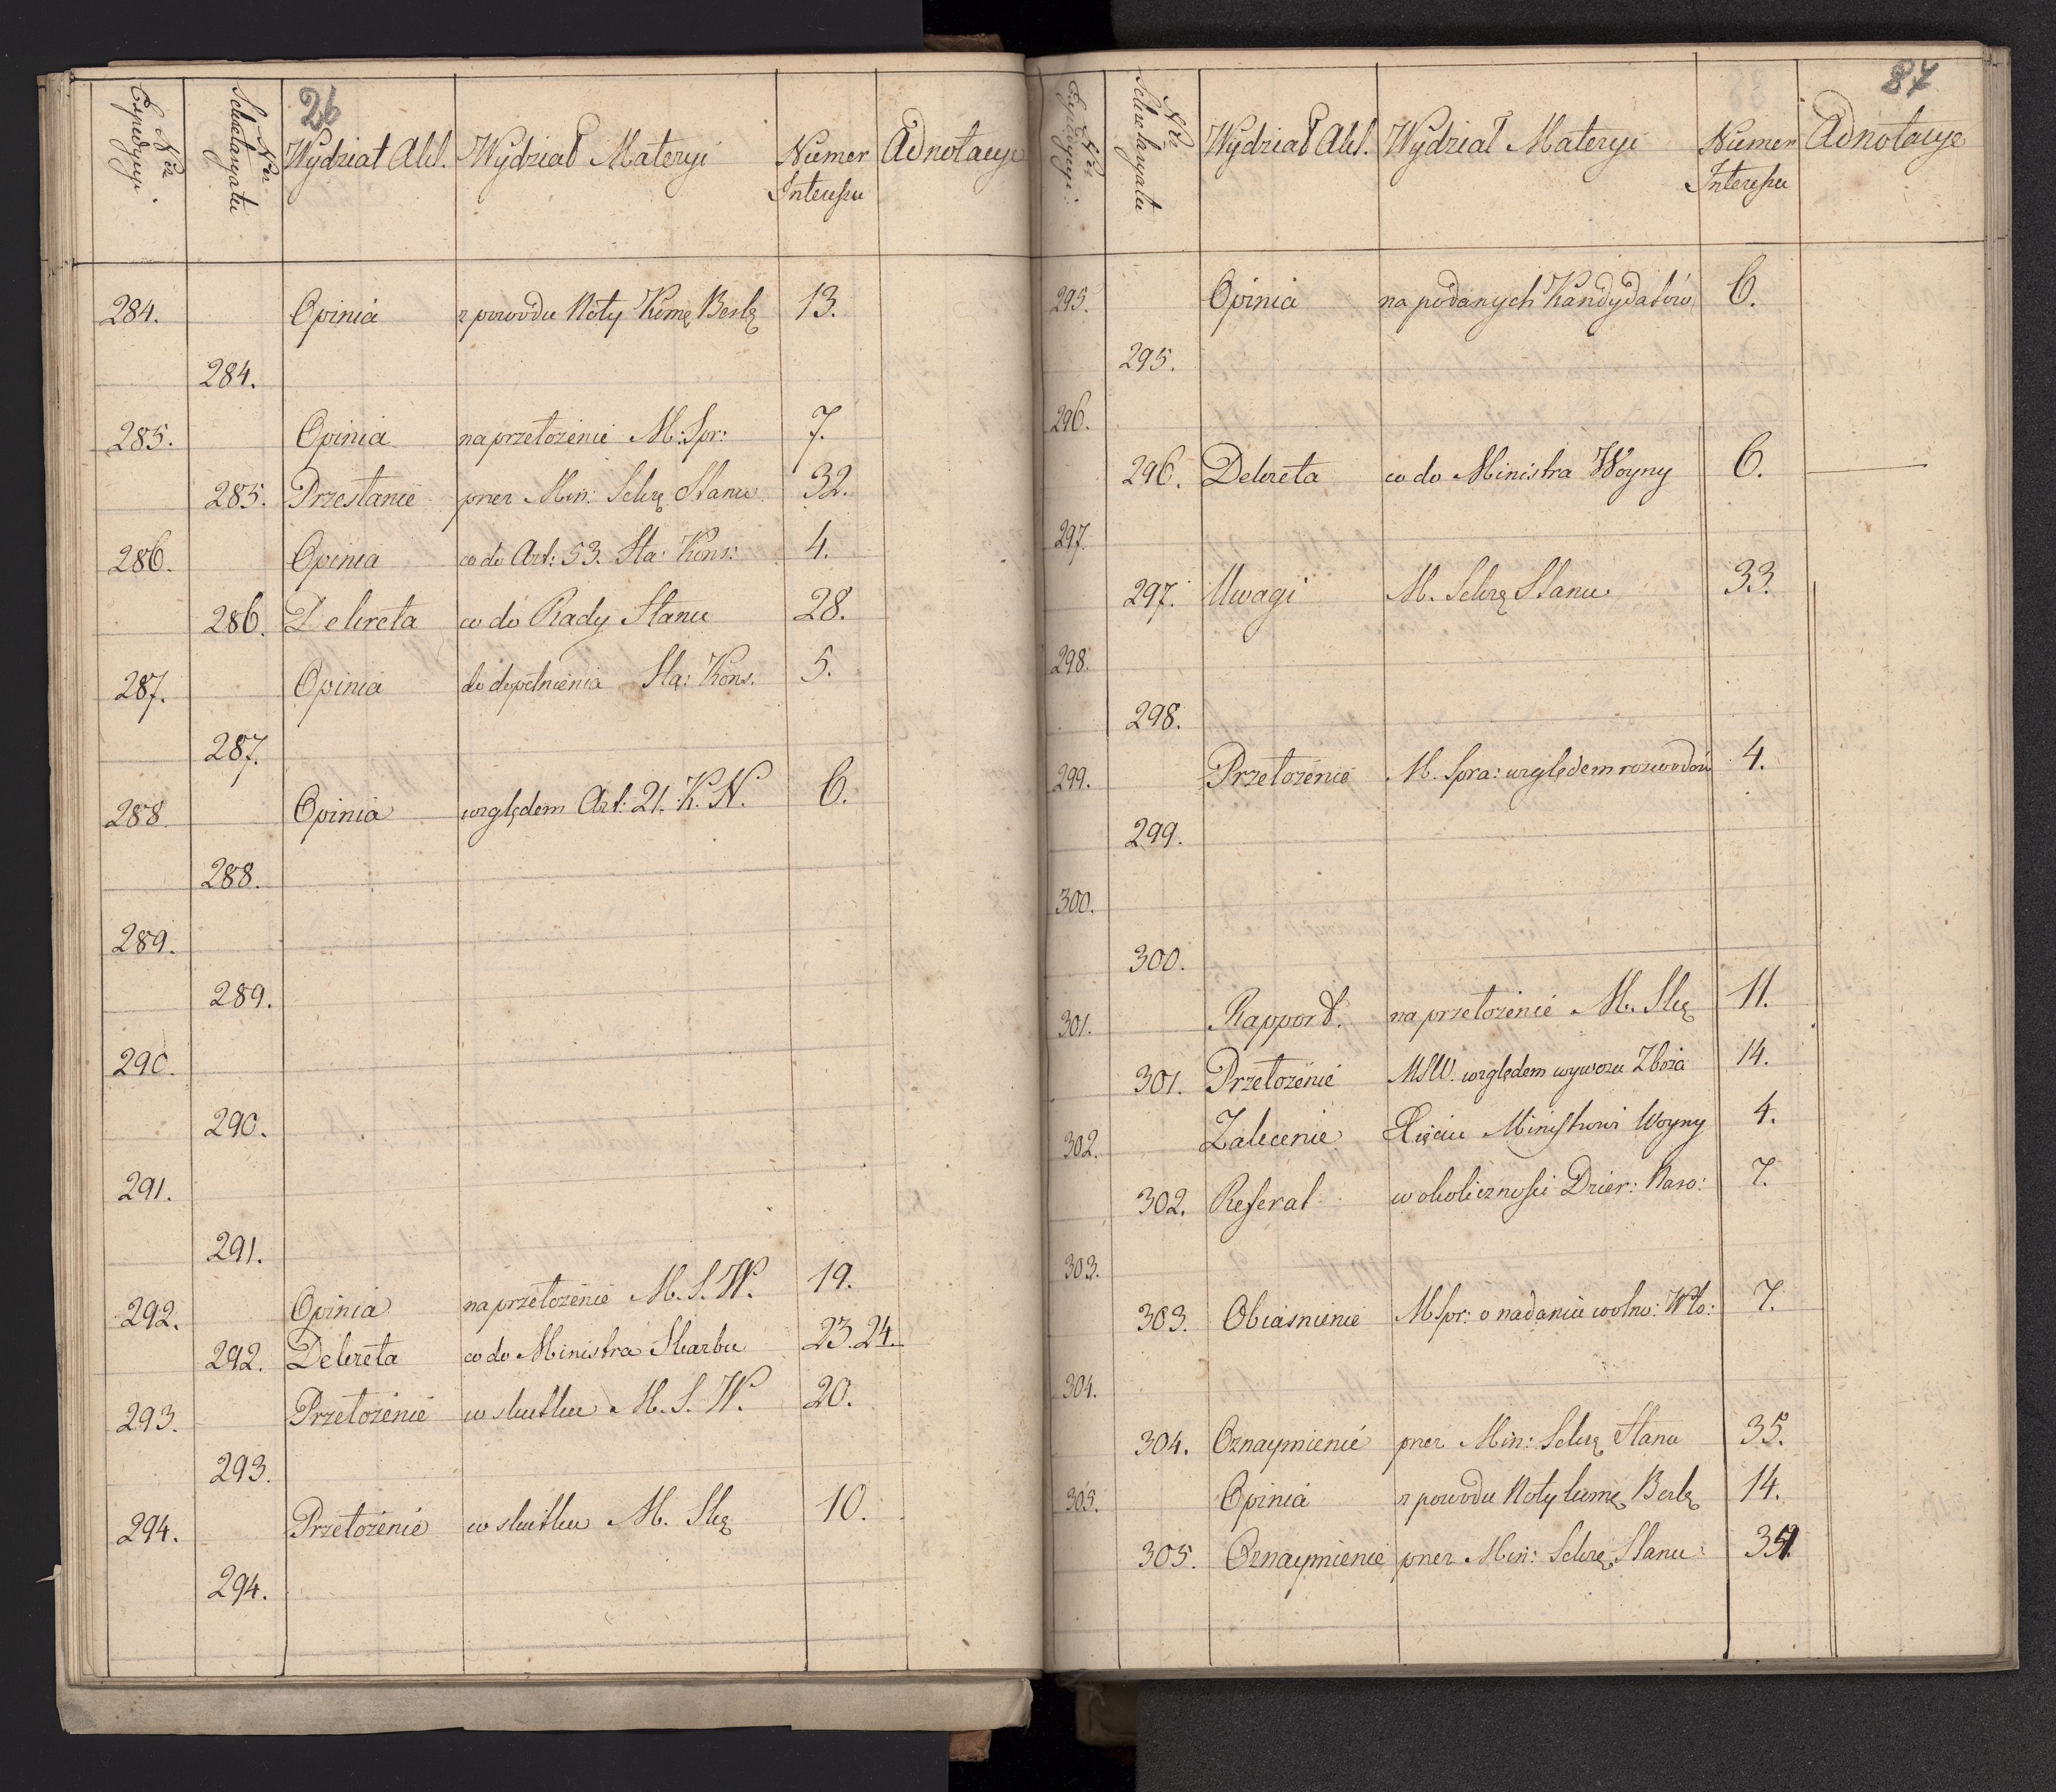 26
Nr Expedycyi. Nr Sekretaryatu Wydział Akt. Wydział Materyi Numer Interessu Adnotacye
284. Opinia z powodu Noty Komę Berlę 13.
284.
285. Opinia na przełożenie M: Spr: 7.
285. Przesłanie przez Min: Sekrę Stanu 32.
286. Opinia co do Art: 53. Sta: Kons: 4.
286. Dekreta co do Rady Stanu 28.
287. Opinia do dopełnienia Sta: Kons. 5.
287.
288 Opinia względem Art: 21. K. N. 6.
288.
289.
289.
290.
290.
291.
291.
292. Opinia na przełożenie M. S. W. 19.
292. Dekreta co do Ministra Skarbu 23. 24.
293. Przełożenie w skutku M. S. W. 20.
293.
294. Przełożenie w skutku M. Skę 10.
294.
87
Nr Expedycyi. Nr Sekretaryatu Wydział Akt. Wydział Materyi Numer Interessu Adnotacye
295. Opinia na podanych Kandydatów 6.
295.
296.
296. Dekreta co do Ministra Woyny 6.
297.
297. Uwagi M. Sekrę Stanu 33.
298.
298.
299. Przełożenie M. Spra: względem rozwodów 4.
299.
300.
300.
301. Rapport. na przełożenie M. Skę 11.
301. Przełożenie MSW. względem wywozu Zboża 14.
302. Zalecenie Xięciu Ministrowi Woyny 4.
302. Referat w okoliczności Dzier: Naro: 7.
303.
303. Obiaśnienie M Spr: o nadaniu wolno: Wło: 7.
304.
304. Oznaymienie przez Min: Sekrę Stanu 35.
305. Opinia z powodu Noty kumę Berlę 14.
305. Oznaymienie przez Min: Sekrę Stanu